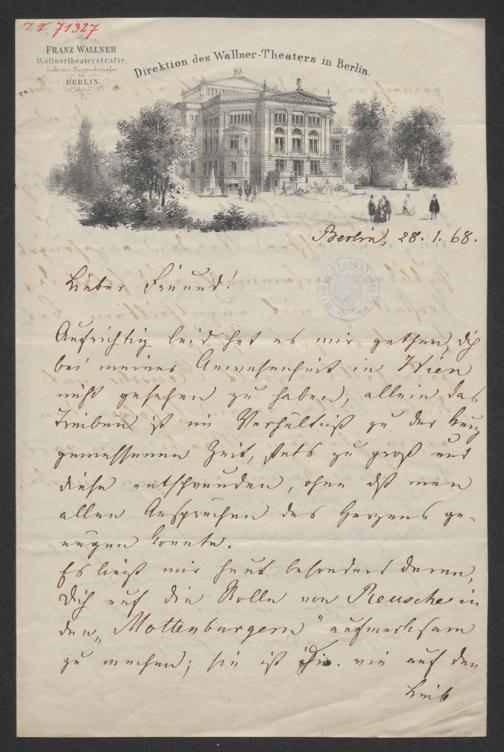 I. N. 71327
FRANZ WALLNER
Wallnertheaterstrasse,
BERLIN.
Direktion des Wallner-Theaters in Berlin.
Berlin, 28. 1. 68.
Lieber Freund!
Aufrichtig leid hat es mir gethan, dich
bei meiner Anwesenheit in Wien
nicht gesehen zu haben, allein das
Treiben ist im Verhältniß zu der kurz
gemessenen Zeit, stets zu groß und
diese entschwunden, ohne daß man
allen Ansprüchen des Herzens ge-
nügen konnte.
Es liegt mir heut besonders daran,
Dich auf die Rolle von Reusche in
den „Mottenburgern" aufmerksam
zu machen; sie ist Dir wie auf den
Leib